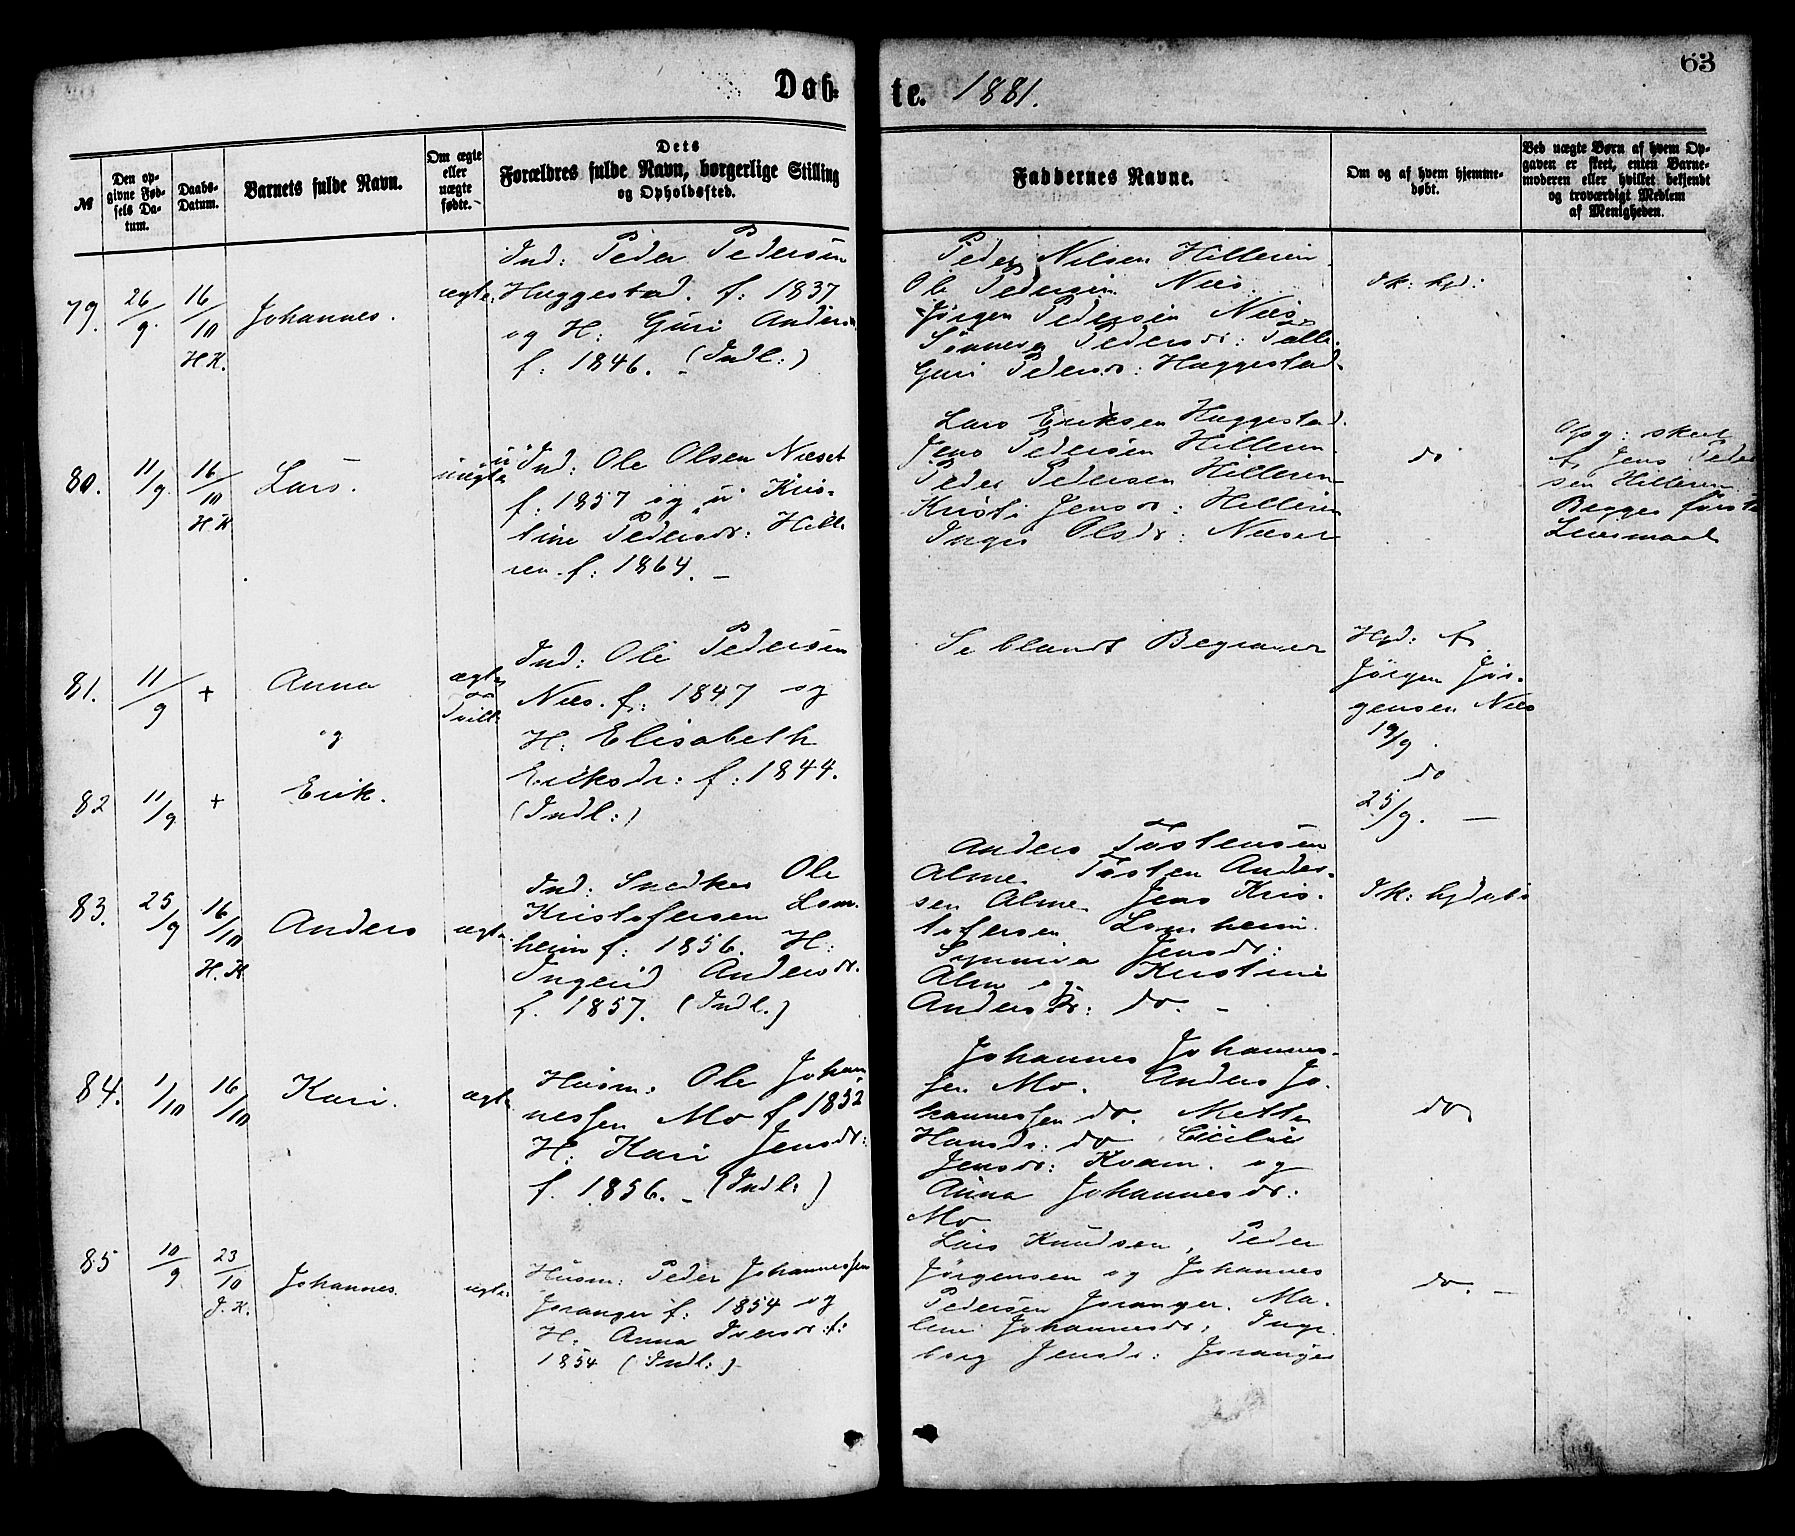 63
Døb-
te. 1881.
№
Den op-
givne Fød-
sels Da-
tum.
Daabs-
Datum.
Barnets fulde Navn.
Om ægte
eller
uægte
fødte.
Dets
Forældres fulde Navn, borgerlige Stilling
og Opholdssted.
Faddernes Navne.
Om og af hvem hjemme-
døbt.
Ved uægte Børn af hvem Op-
gaven er skeet, enten Barne-
moderen eller hvilket bekjendt
og troværdigt Medlem
af Menigheden.
79.
26/9.
16/10
H K.
Johannes.
ægte
Ind: Peder Pedersen
Huggestad. f: 1837
og H: Guri Anders
f: 1846. (Indl:)
Peder Nilsen Hilleren
Ole Pedersen Næs.
Jørgen Pedersen Næs
Synneva Pedersdr:
Guri Pedersdr: Haggestad.
Ik: hjd:
80.
11/9.
16/10
H K
Lars.
uægte
Ind: Ole Olsen Næset
f: 1857 og u Kris-
tine Pedersdr: Hille-
ren. f: 1864. –
Lars Eriksen Huggestad.
Jens Pedersen Hilleren
Peder Pedersen Hilleren
Kristi Jensdr: Hilleren
Inger Olsdr: Næset
do
Opg: skeet
af Jens Peder
sen Hilleren
Begges første
Leiermaal
81.
11/9
+
Anna
og
ægte
Tvill:
Ind: Ole Pedersen
Næs. f: 1847 og
H: Elisabeth
Eriksdr: f: 1844.
(Indl:)
Se blandt Begravede
Hjd: af
Jørgen Jør-
gensen Næs
19/9.
82
11/9
+
Erik.
do
25/9. –
83.
25/9
16/10
H. K
Anders
ægte
Ind: Snedker Ole
Kristofersen Lom-
heim f: 1856. H:
Ingerid Andersdr.
f. 1857. (Indl.)
Anders Tostensen
Alme. Tosten Ander-
sen Alme. Jens Kris-
tofersen Lomheim.
Synneva Jensdr:
Alm og Kristine
Andersdr: do. –
Ik: hjdøbt
84.
1/10
16/10
Kari.
ægte
Husm: Ole Johan
nessen Mo f. 1852
H: Kari Jensdr:
f. 1856. – (Indl:)
Johannes Johannes-
sen Mo. Anders Jo-
hannessen do. Mette
Hansdr: do Cecilie
Jensdr: Kvam. og
Anna Johannesdr:
Mo
do
85
10/9.
23/10
J. K.
Johannes.
ægte:
Husm: Peder Johannessen
Joranger f: 1854 og
H. Anna Iversdr: f:
1854 (Indl:)
Lars Knudsen, Peder
Jørgensen og Johannes
Pedersen Joranger. Ma-
lene Johannesdr: Inge-
borg Jensdr: Joranger
do. –